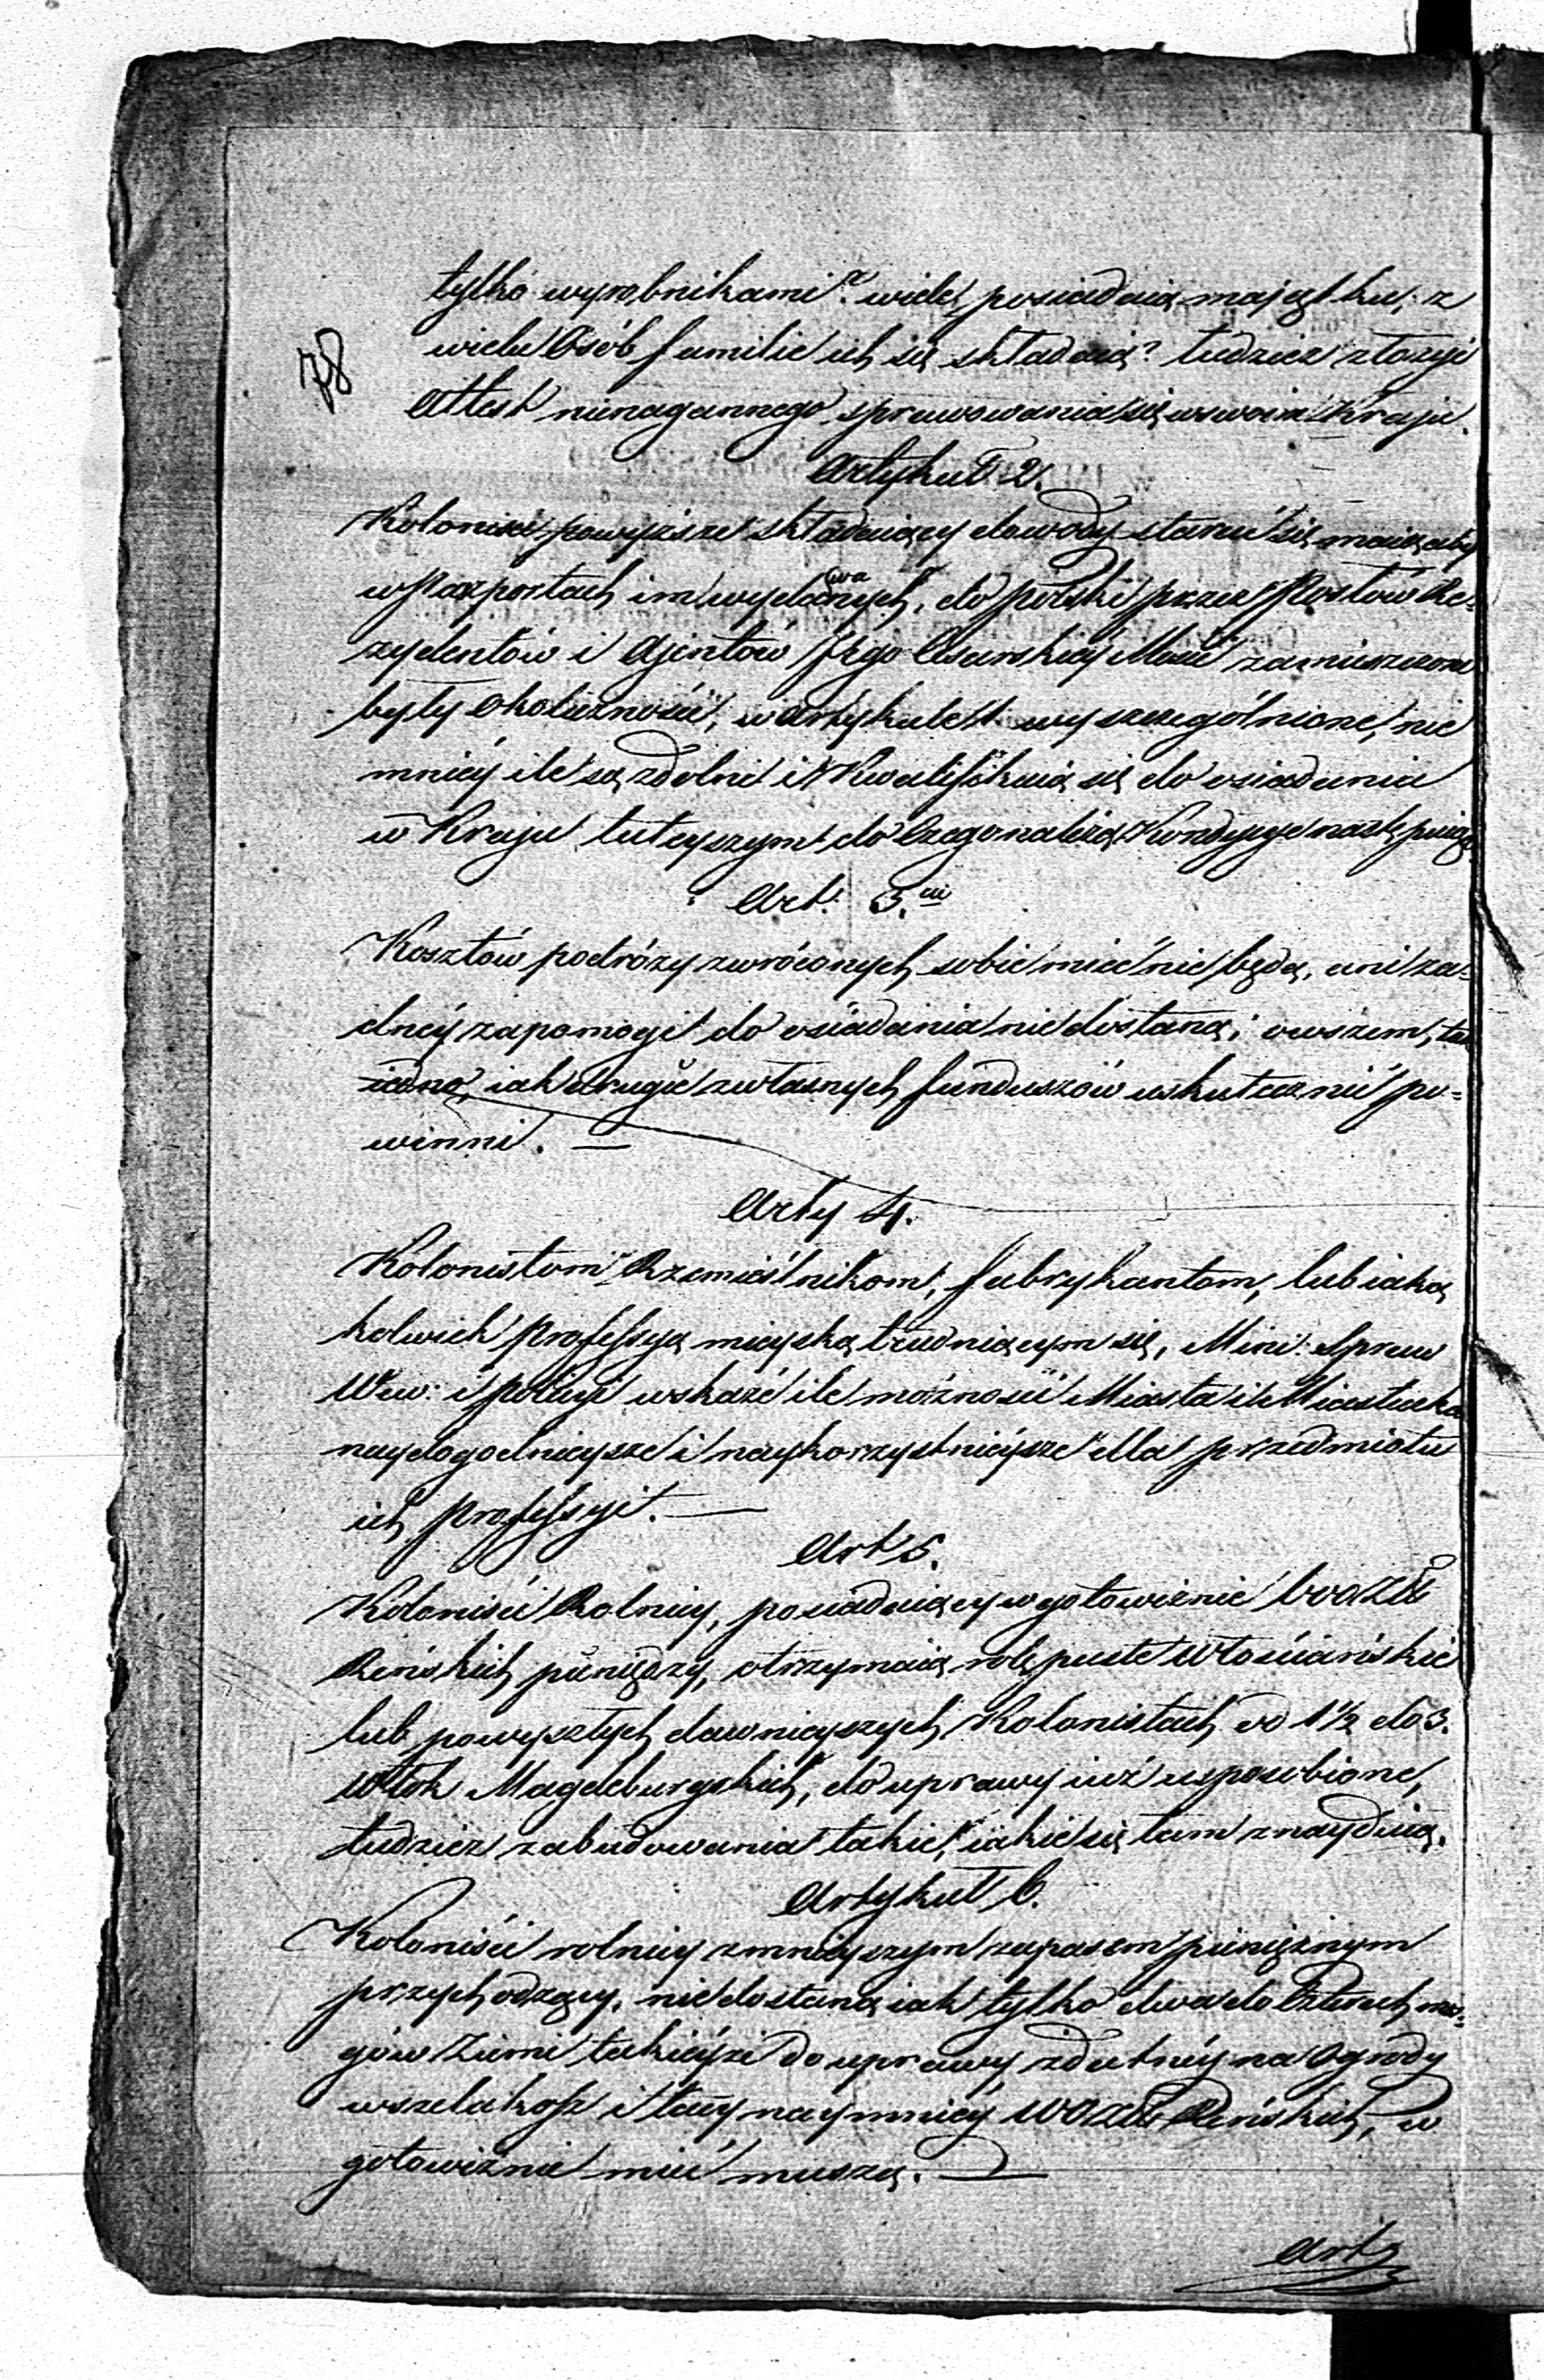 tylko wyrobnikami? wiele posiadaią majątku; z
78
wielu Osób familie ich się składaią? tudzież złożyć
Attest nienagannego sprawowania się w swoim Kraju.
Artykuł 2.
Koloniści powyższe składaiący dowody starać się maią, aby
w Paszportach im wydawanych, do Polski przez Posłów Re=
zydentów i Ajentów Jego Cesarskiéy Mości zamieszczone
były okoliczności, w Artykule 1. wyszczególnione, nie
mniéy ile są zdolni i Kwalifikuią się do osiadania
w Kraju tuteyszym do czego należą Kondycye następuiące
Art. 3.ci
Kosztów podróży zwróconych sobie mieć nie będą, ani ża=
dnéy zapomogi do osiadania nie dostaną; owszem, tak
iedno, iak drugie z własnych funduszów uskutecznić po=
winni. —
Arty 4.
Kolonistom Rzemieślnikom, fabrykantom, lub iaką
kolwiek Professyą mieyską trudniącym się, Mini: Spraw
Wew: i Policyi wskaże ile możności Miasta i Miasteczka
naydogodnieysze i naykorzystniéysze dla przedmiotu
ich Professyi. —
Art 5.
Koloniści Rolnicy, posiadaiący w gotowiźnie 600 Złł
Reńskich pieniędzy, otrzymaią rolę puste Włościańskie
lub po wyszłych dawnieyszych Kolonistach od 1½ do 3.
Włók Magdeburgskich, do uprawy iuż usposobione,
tudzież zabudowania takie, iakie się tam znayduią.
Artykuł 6.
Koloniści rolnicy z mnieyszym zapasem pieniężnym
przychodzący, nie dostaną iak tylko dwa do Czterech mor=
gów Ziemi takiéyże do uprawy zdatnéy na Ogrody
wszelakoż i tacy naymniéy 100 Złł Reńskich, w
gotowiźnie mieć muszą. —
Arty